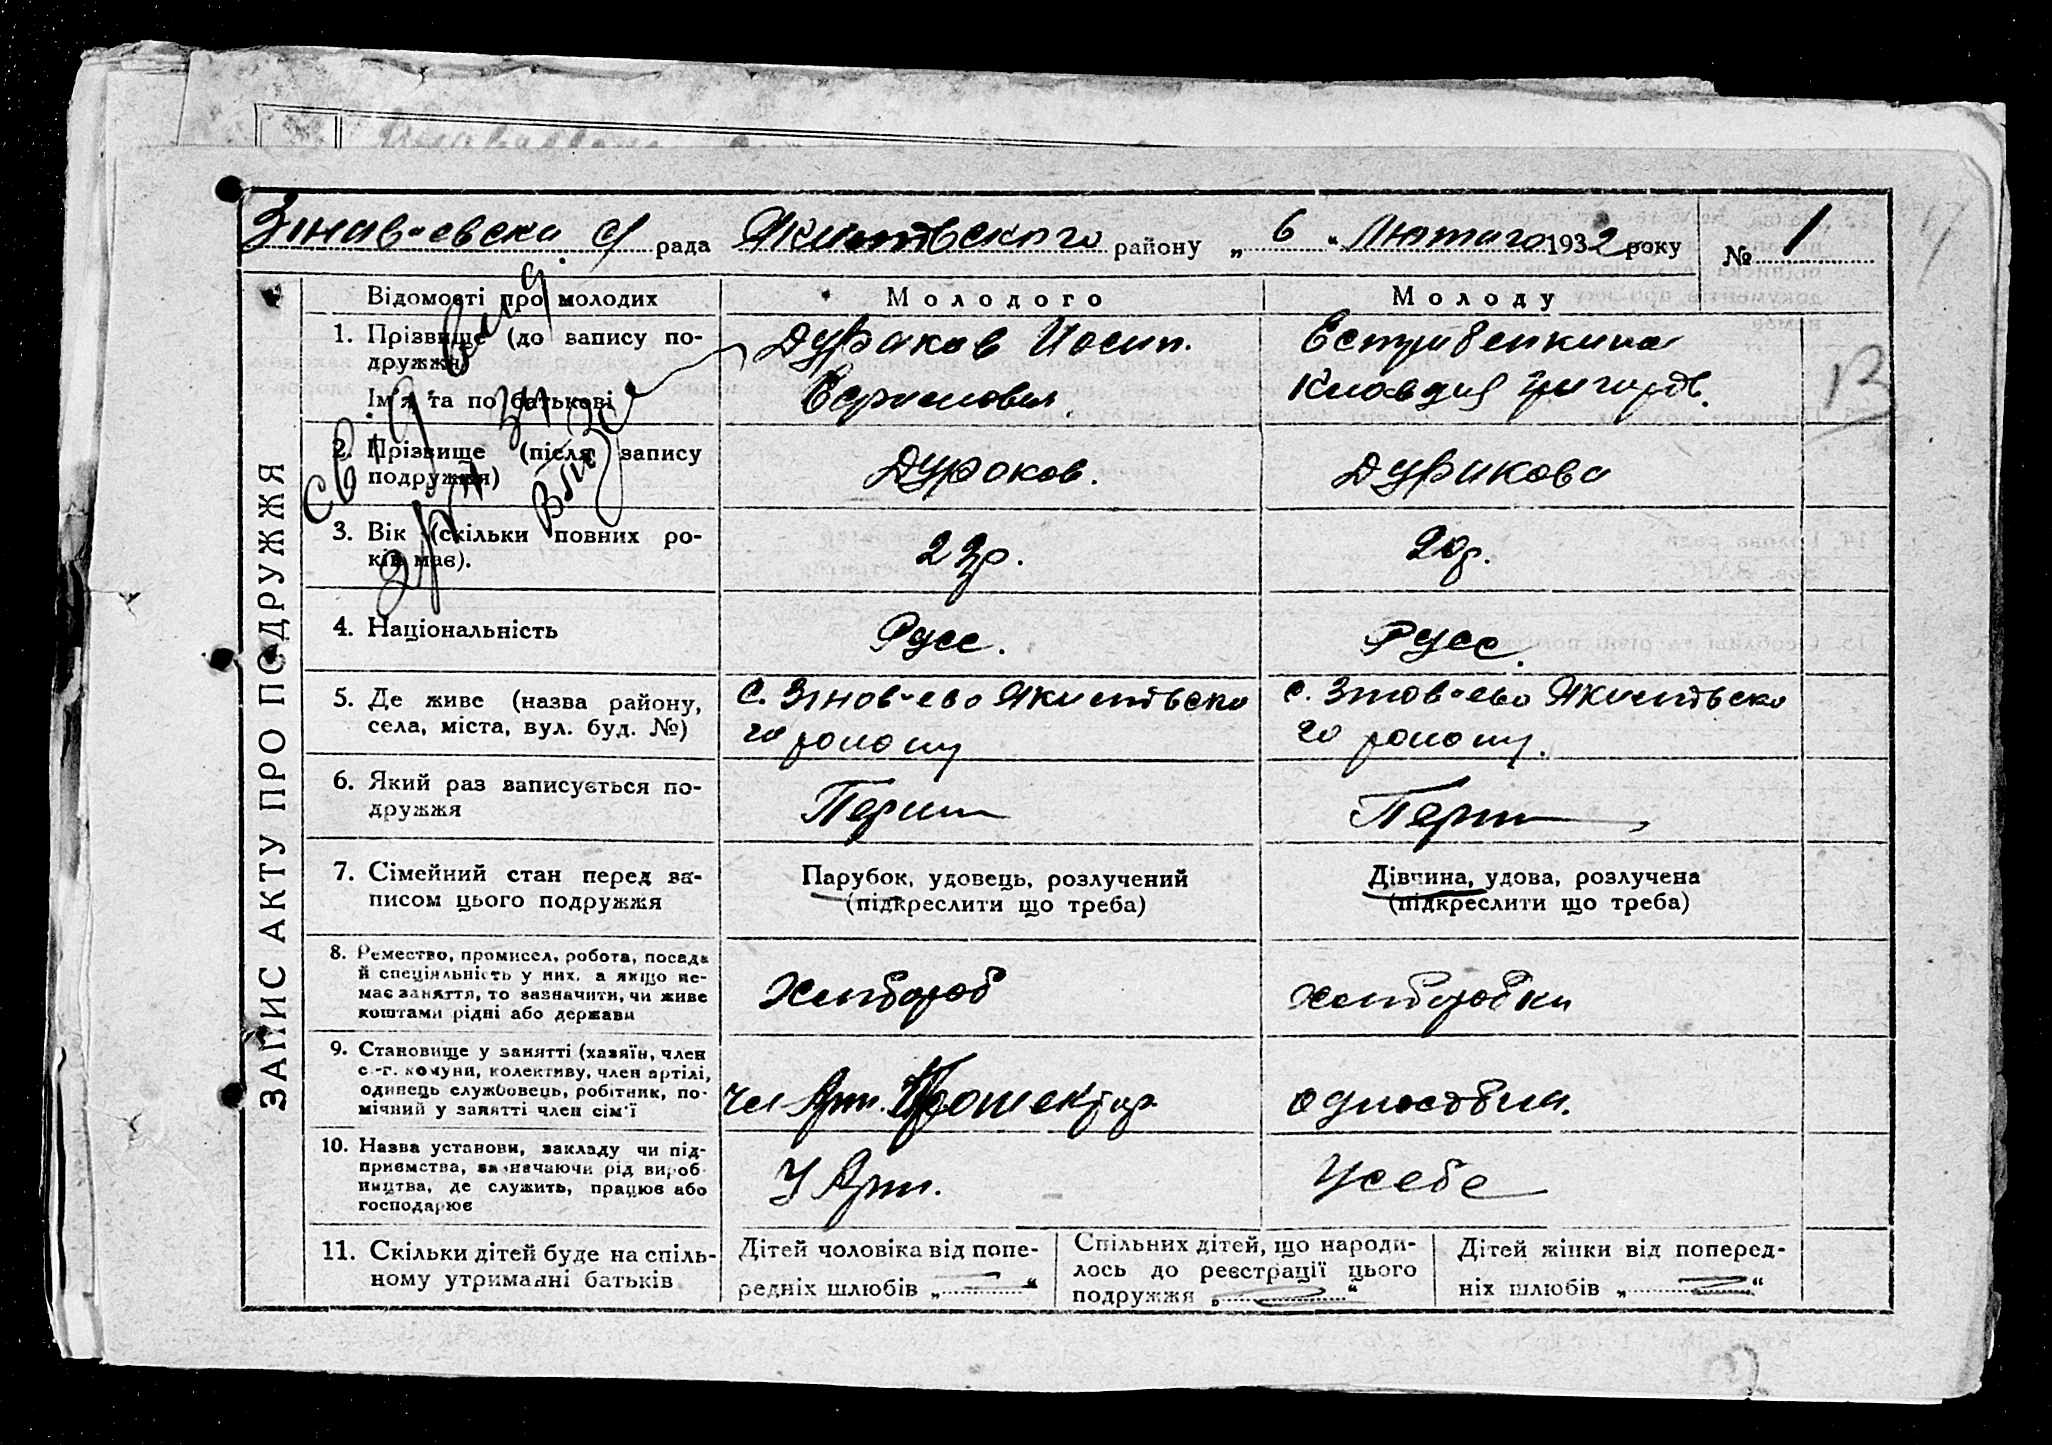 рада району „ 6 “ Лютого 1932 року № 1
ЗАПИС АКТУ ПРО ПОДРУЖЖЯ
Відомості про молодих
Молодого
Молоду
1. Прізвище (до запису по-
дружжя)
Ім'я та по батькові
Дураков Иосип
Клавдия Григорьев.
2. Прізвище (після запису
подружжя)
Дураков.
Дуракова
3. Вік (скільки повних ро-
ків має).
23р.
20р.
4. Національність
Русс.
Русс.
5. Де живе (назва району,
села, міста, вул. буд. №)
с.
го району
с.
го району.
6. Який раз записується по-
дружжя
Перш
Перш
7. Сімейний стан перед за-
писом цього подружжя
Парубок, удовець, розлучений
(підкреслити що треба)
Дівчина, удова, розлучена
(підкреслити що треба)
8. Ремество, промисел, робота, посада
й спеціяльність у них, а якщо не-
має заняття, то зазначити, чи живе
коштами рідні або держави
Хлибороб
хлиборобка
9. Становище у занятті (хазяїн, член
с.-г. комуни, колективу, член артілі,
одинець службовець, робітник, по-
мічний у занятті член сім'ї
Чл Арт.
одноосибна.
10. Назва установи, закладу чи під-
приємства, зазначаючи рід вироб-
ництва, де служить, працює або
господарює
У Арт.
У себе
11. Скільки дітей буде на спіль-
ному утриманні батьків
Дітей чоловіка від попе-
редніх шлюбів „ “
Спільних дітей, що народи-
лось до реєстрації цього
подружжя „ “
Дітей жінки від поперед-
ніх шлюбів „ “